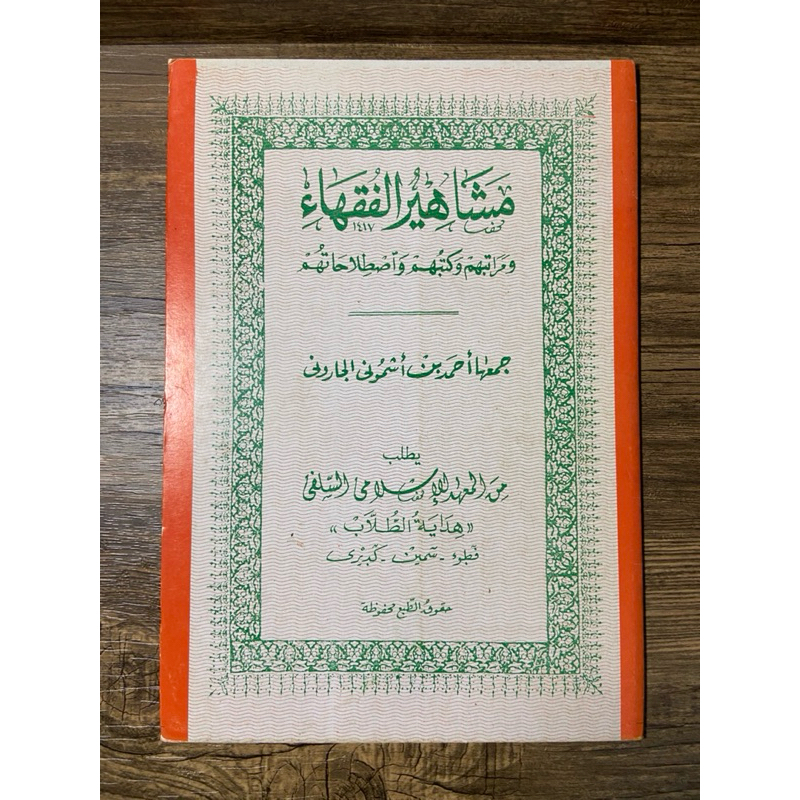 مَشَاهِيرُ الفُقَهَاءِ
١٤١٧
وَمَرَاتبهم وَكتبُهُم وَاصْطِلَاحَاتُهُمْ
جمعها أحمَد بن أشمُونى الجارونى
يطلب
مِنَ المعهد الإسْلَامى السَّلفى
«هِدَايَةُ الطُّلَّابْ»
فطوء - سمين - كديرى
حقوق الطَّبع محفوظة